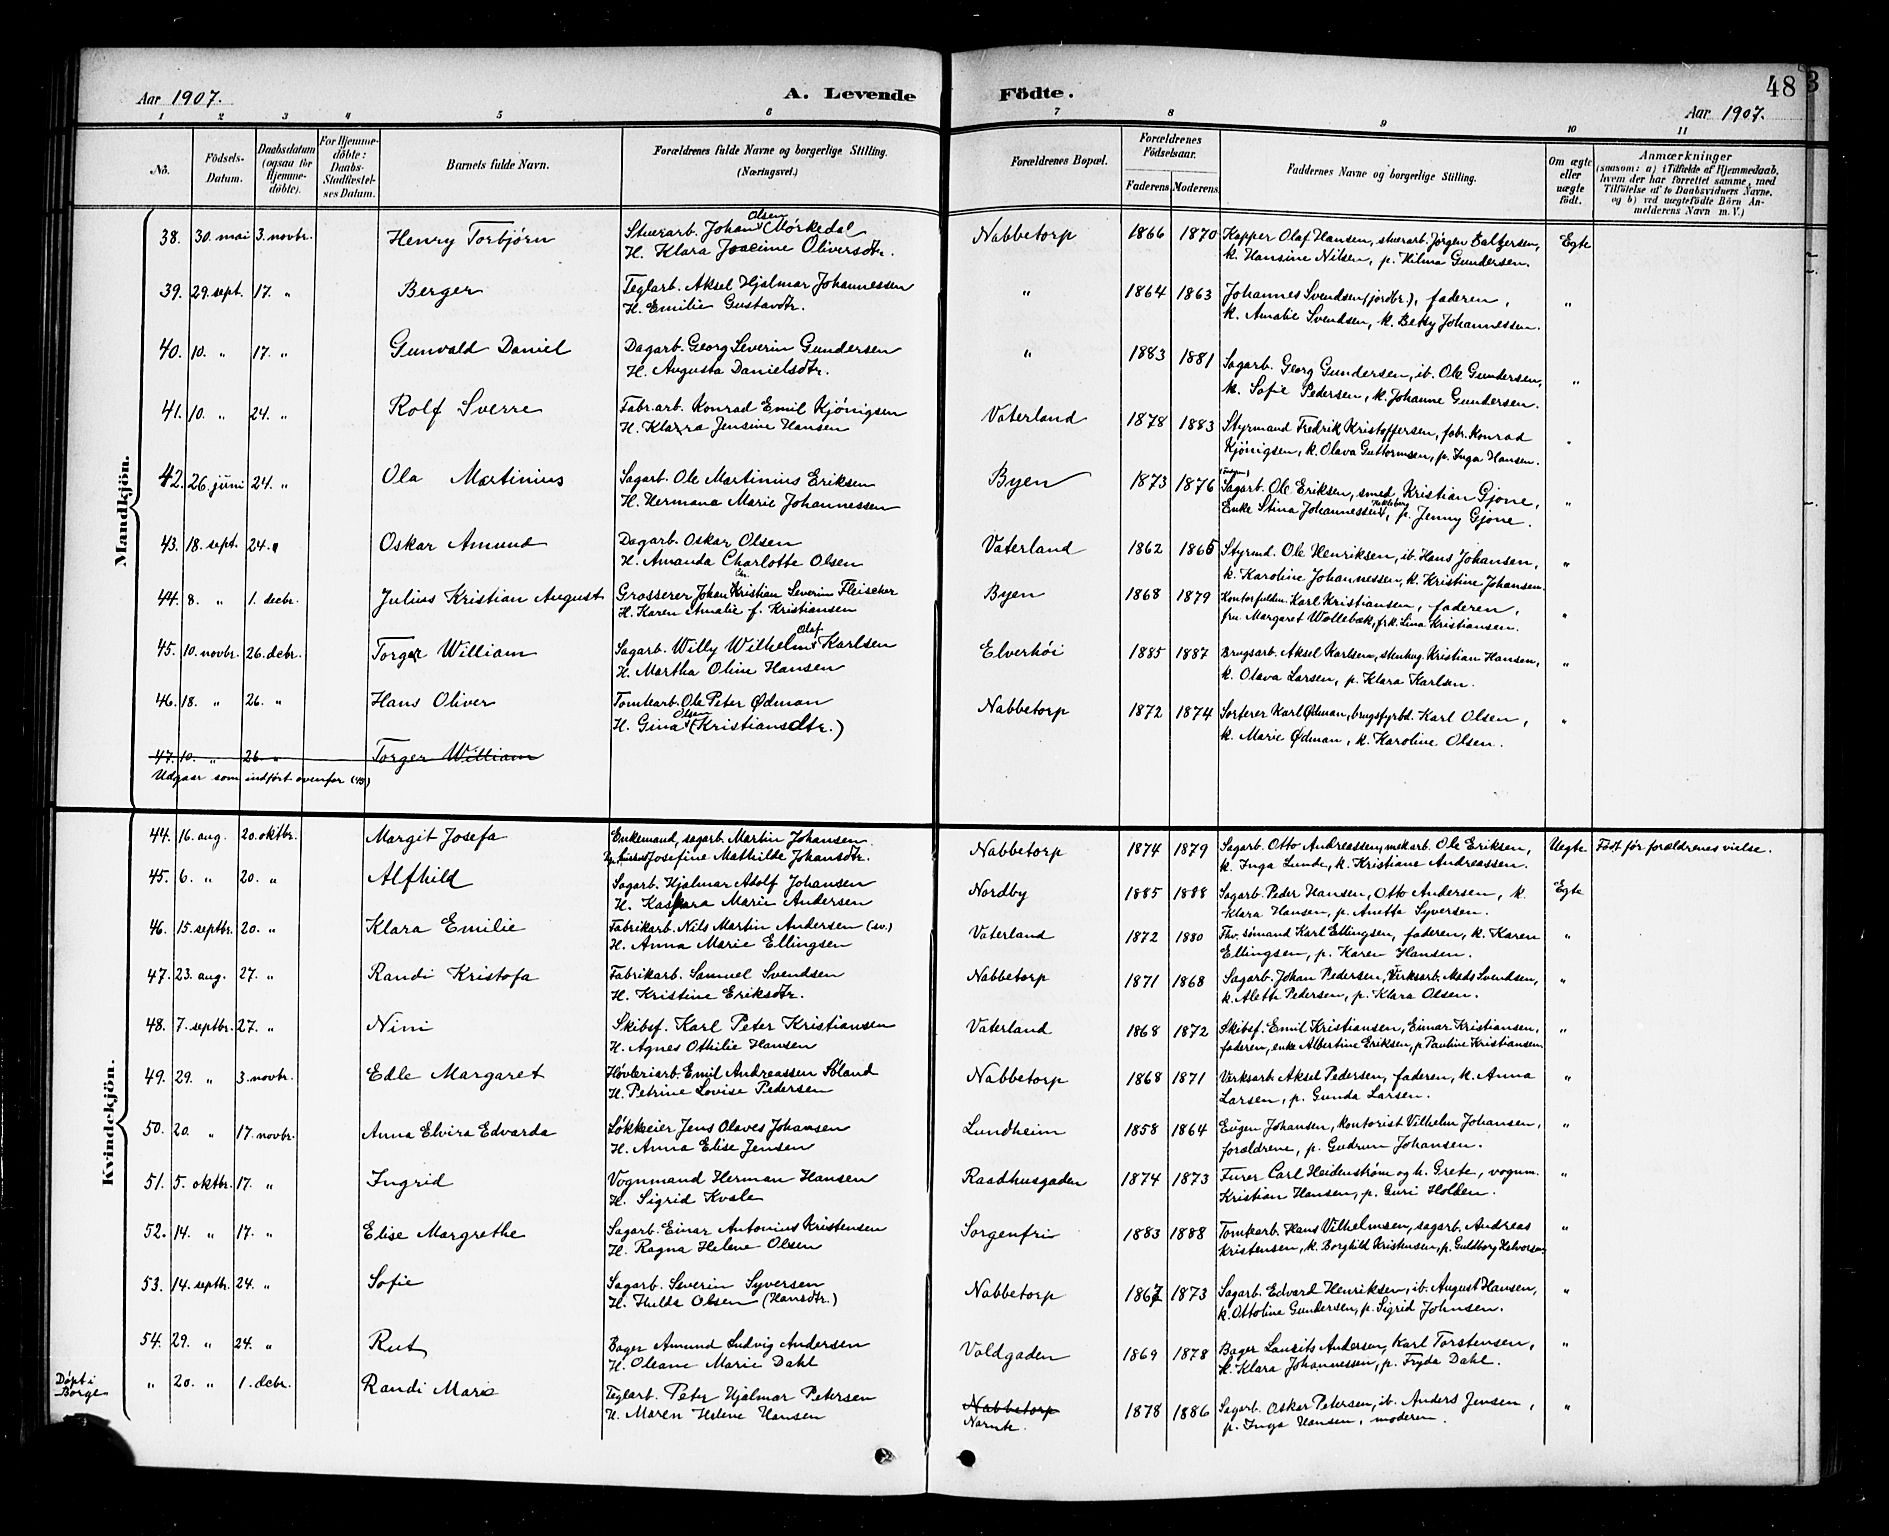 Aar 1907.
A. Levende
Födte.
Aar 1907.
48
1 2 3 4 5 6 7 8 9 10 11
No.
Födsels-Datum.
Daabsdatum (ogsaa for Hjemmedöbte).
For Hjemmedöbte: Daabs-Stadfæstelses Datum.
Barnets fulde Navn.
Forældrenes fulde Navne og borgerlige Stilling. (Næringsvei.)
Forældrenes Bopæl.
Forældrenes Födselsaar.
Faderens. Moderens.
Faddernes Navne og borgerlige Stilling.
Om ægte eller uægte födt.
Anmærkninger
(saasom: a) i Tilfælde af Hjemmedaab, hvem der har forrettet samme, med Tilföielse af to Daabsvidners Navne, og b) ved uægtefödte Börn Anmelderens Navn m. V.)
Mandkjön.
38. 30. mai 3. novbr. Henry Torbjørn Stuerarb. Johan Olsen Mørkedal Nabbetorp 1866 1870 Kapper Olaf Hansen, stuerarb. Jørgen Baltzersen, Egte
H. Klara Joacime Oliversdtr. k. Hansine Nilsen, p. Hilma Gundersen.
39. 29. sept. 17. " Berger Teglarb. Aksel Hjalmar Johannessen " 1864 1863 Johannes Svendsen (jordbr.), faderen, "
H. Emilie Gustavdtr. k. Amalie Svendsen, k. Betzy Johannessen.
40. 10. " 17. " Gunvald Daniel Dagarb. Georg Severin Gundersen " 1883 1881 Sagarb. Georg Gundersen, ib. Ole Gundersen, "
H. Augusta Danielsdtr. k. Sofie Pedersen, k. Johanne Gundersen.
41. 10. " 24. " Rolf Sverre Fabr.arb. Konrad Emil Kjønigsen Vaterland 1878 1883 Styrmand Fredrik Kristoffersen, fabr. Konrad "
H. Klara Jensine Hansen Kjønigsen, k. Olava Guttormsen, p. Inga Hansen.
42. 26. juni 24. " Ola Martinius Sagarb. Ole Martinius Eriksen Byen 1873 1876 Sagarb. Ole Eriksen, smed Kristian Gjone, "
H. Hermana Marie Johannessen Enke Stina Johannessen, p. Jenny Gjone.
43. 18. sept. 24. " Oskar Amund Dagarb. Oskar Olsen Vaterland 1862 1865 Styrmd. Ole Henriksen, ib. Hans Johansen, "
H. Amanda Charlotte Olsen k. Karoline Johannessen, k. Kristine Johansen.
44. 8. " 1. decbr. Julius Kristian August Grosserer Johan Chr. Kristian Severin Fleischer Byen 1868 1879 Kontorfuldm. Karl Kristiansen, faderen, "
H. Karen Amalie f. Kristiansen fru Margaret Wøllebæk, frk. Lina Kristiansen.
45. 10. novbr. 26. decbr. Torger William Sagarb. Willy Wilhelm Olaf Karlsen Elverhöi 1885 1887 Brugsarb. Aksel Karlsen, stenhug. Kristian Hansen, "
H. Martha Oline Hansen k. Olava Larsen, p. Klara Karlsen.
46. 18. " 26. " Hans Oliver Tomtearb. Ole Peter Ødman Nabbetorp 1872 1874 Sorterer Karl Ødman, brugsfyrbd. Karl Olsen, "
H. Gina Olsen (Kristiansdtr.) k. Marie Ødman, k. Karoline Olsen.
47. 10. " 26. " Torger William
Udgaar som indført ovenfor (45)
Kvindekjön.
44. 16. aug. 20. oktbr. Margit Josefa Enkemand, sagarb. Martin Johansen Nabbetorp 1874 1879 Sagarb. Otto Andreassen, mekarb. Ole Eriksen, Uegte Født før forældrenes vielse.
Josefine Mathilde Johansdtr. k. Inga Lunde, k. Kristiane Andreassen.
45. 6. " 20. " Alfhild Sagarb. Hjalmar Adolf Johansen Nordby 1885 1888 Sagarb. Peder Hansen, Otto Andersen, k. Egte
H. Kaspara Marie Andersen Klara Hansen, p. Anetta Syversen.
46. 15. septbr. 20. " Klara Emilie Fabrikarb. Nils Martin Andersen (sv.) Vaterland 1872 1880 Fhv. sømand Karl Ellingsen, faderen, k. Karen "
H. Anna Marie Ellingsen Ellingsen, p. Karen Hansen.
47. 23. aug. 27. " Randi Kristofa Fabrikarb. Samuel Svendsen Nabbetorp 1871 1868 Sagarb. Johan Pedersen, Virksarb. Mads Svendsen, "
H. Kristine Eriksdtr. k. Alette Pedersen, p. Klara Olsen.
48. 7. septbr. 27. " Nini Skibsf. Karl Peter Kristiansen Vaterland 1868 1872 Skibsf. Emil Kristiansen, Einar Kristiansen, "
H. Agnes Othilie Hansen faderen, enke Albertine Eriksen, p. Pauline Kristiansen.
49. 29. " 3. novbr. Edle Margaret Høvleriarb. Emil Andreassen Søland Nabbetorp 1868 1871 Verksarb. Aksel Pedersen, faderen, k. Anna "
H. Petrine Lovise Pedersen Larsen, p. Gunda Larsen.
50. 20. " 17. novbr. Anna Elvira Edvarda Løkkeeier Jens Olaves Johansen Lundheim 1858 1864 Eugen Johansen, Kontorist Vilhelm Johansen, "
H. Anna Elise Jensen forældrene, p. Gudrun Johansen.
51. 5. oktbr. 17. " Ingrid Vognmand Herman Hansen Raadhusgaden 1874 1873 Furer Carl Heidenstrøm og h. Grete, vogum. "
H. Sigrid Kvale Kristian Hansen, p. Guri Holden.
52. 14. " 17. " Elise Margrethe Sagarb. Einar Antonius Kristensen Sorgenfri 1883 1888 Tomtearb. Hans Vilhelmsen, sagarb. Andreas "
H. Ragna Helene Olsen Kristensen, k. Borghild Kristensen, p. Guldborg Halvorsen.
53. 14. septbr. 24. " Sofie Sagarb. Severin Syversen Nabbetorp 1867 1873 Sagarb. Edvard Henriksen, ib. August Hansen, "
H. Hulda Olsen (Hansdtr.) k. Ottoline Gundersen, p. Sigrid Johnsen.
54. 29. " 24. " Rut Bager Amund Ludvig Andersen Voldgaden 1869 1878 Bager Lausits Andersen, Karl Torstensen, "
H. Oleane Marie Dahl k. Klara Johannessen, p. Fryda Dahl.
Døpt i Borge " 20. " 1. decbr. Randi Marie Teglarb. Peter Hjalmar Petersen Nabbetorp 1878 1886 Sagarb. Oskar Petersen, ib. Anders Jensen, "
H. Maren Helene Hansen p. Inga Hansen, moderen.